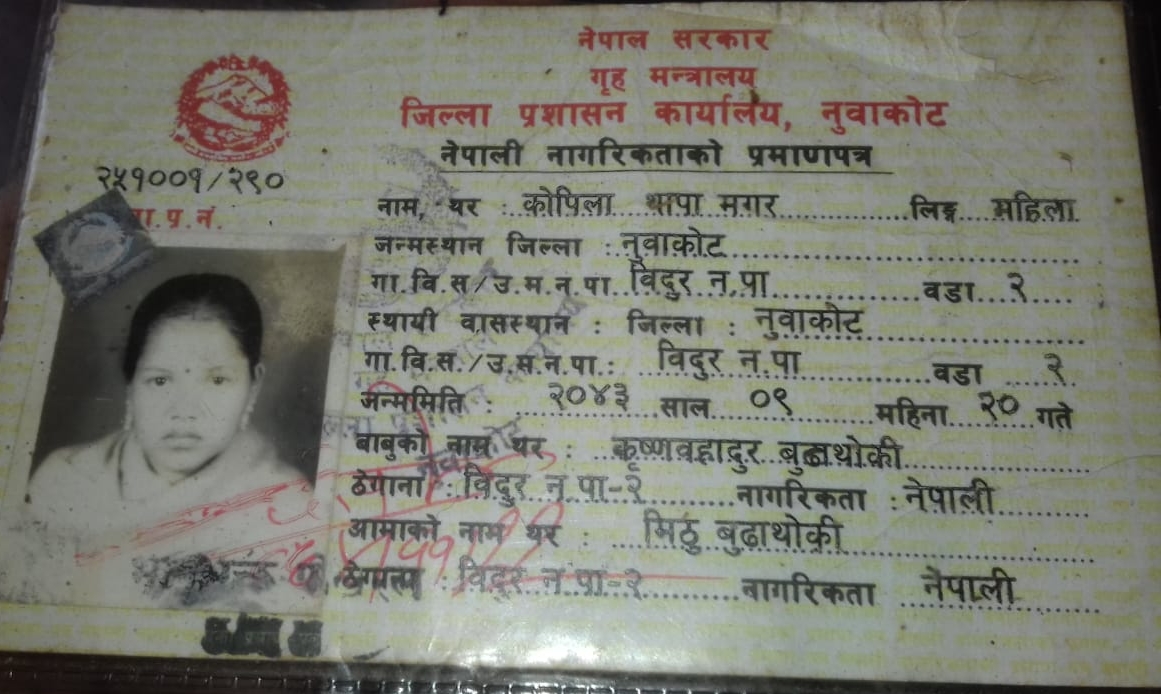 नेपाल सरकार
गृह मन्त्रालय
जिल्ला प्रशासन कार्यालय, नुवाकोट
नेपाली नागरिकताको प्रमाणपत्र
२५१००१/२९०
ना.प्र.नं.
नाम, थर : कोपिला थापा मगर लिङ्ग महिला
जन्मस्थान जिल्ला : नुवाकोट
गा.वि.स/उ.म.न.पा. विदुर न.पा वडा २
स्थायी वासस्थान : जिल्ला : नुवाकोट
गा.वि.स./उ.म.न.पा.: विदुर न.पा वडा २
जन्ममिति : २०४३ साल ०९ महिना २० गते
बाबुको नाम थर : कृष्णवहादुर बुढाथोकी
ठेगाना : विदुर न.पा-२ नागरिकता : नेपाली
आमाको नाम थर : मिठु बुढाथोकी
ठेगाना : विदुर न.पा-२ नागरिकता नेपाली